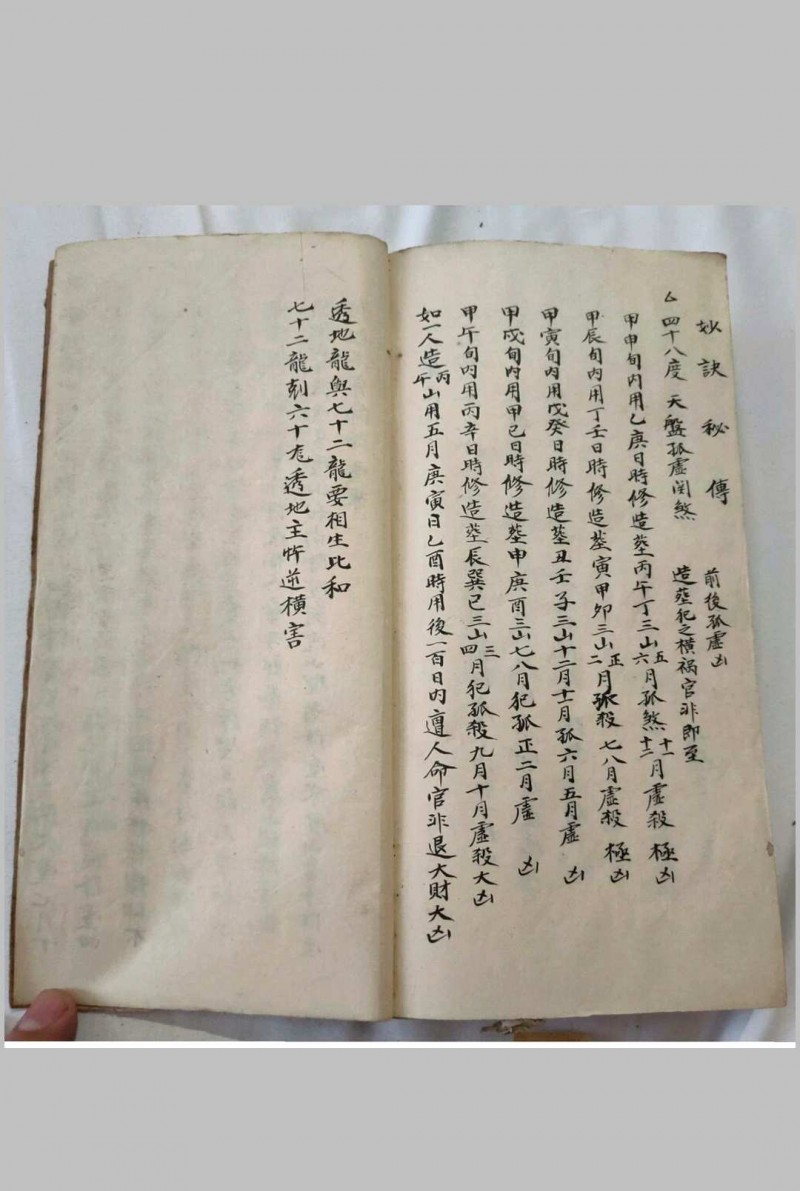 妙訣秘傳
前後孤虛凶
厶四十八度天盤孤虛閏煞
造葬犯之横祸官非即至
甲申旬内用乙庚日時修造葬丙午丁三山五六月孤煞十一十二月虛殺極凶
甲辰旬内用丁壬日時修造葬寅甲卯三山正二月孤殺七八月虛殺極凶
甲寅旬内用戊癸日時修造葬丑壬子三山十二月十一月孤六月五月虛凶
甲戌旬内用甲己日時修造葬申庚酉三山七八月犯孤正二月虛凶
甲午旬内用丙辛日時修造葬辰巽巳三山三四月犯孤殺九月十月虛殺大凶
如一人造丙午山用五月庚寅日乙酉時用後一百日内遭人命官非退大財大凶
透地龍與七十二龍要相生比和
七十二龍剋六十龙透地主忤逆横害